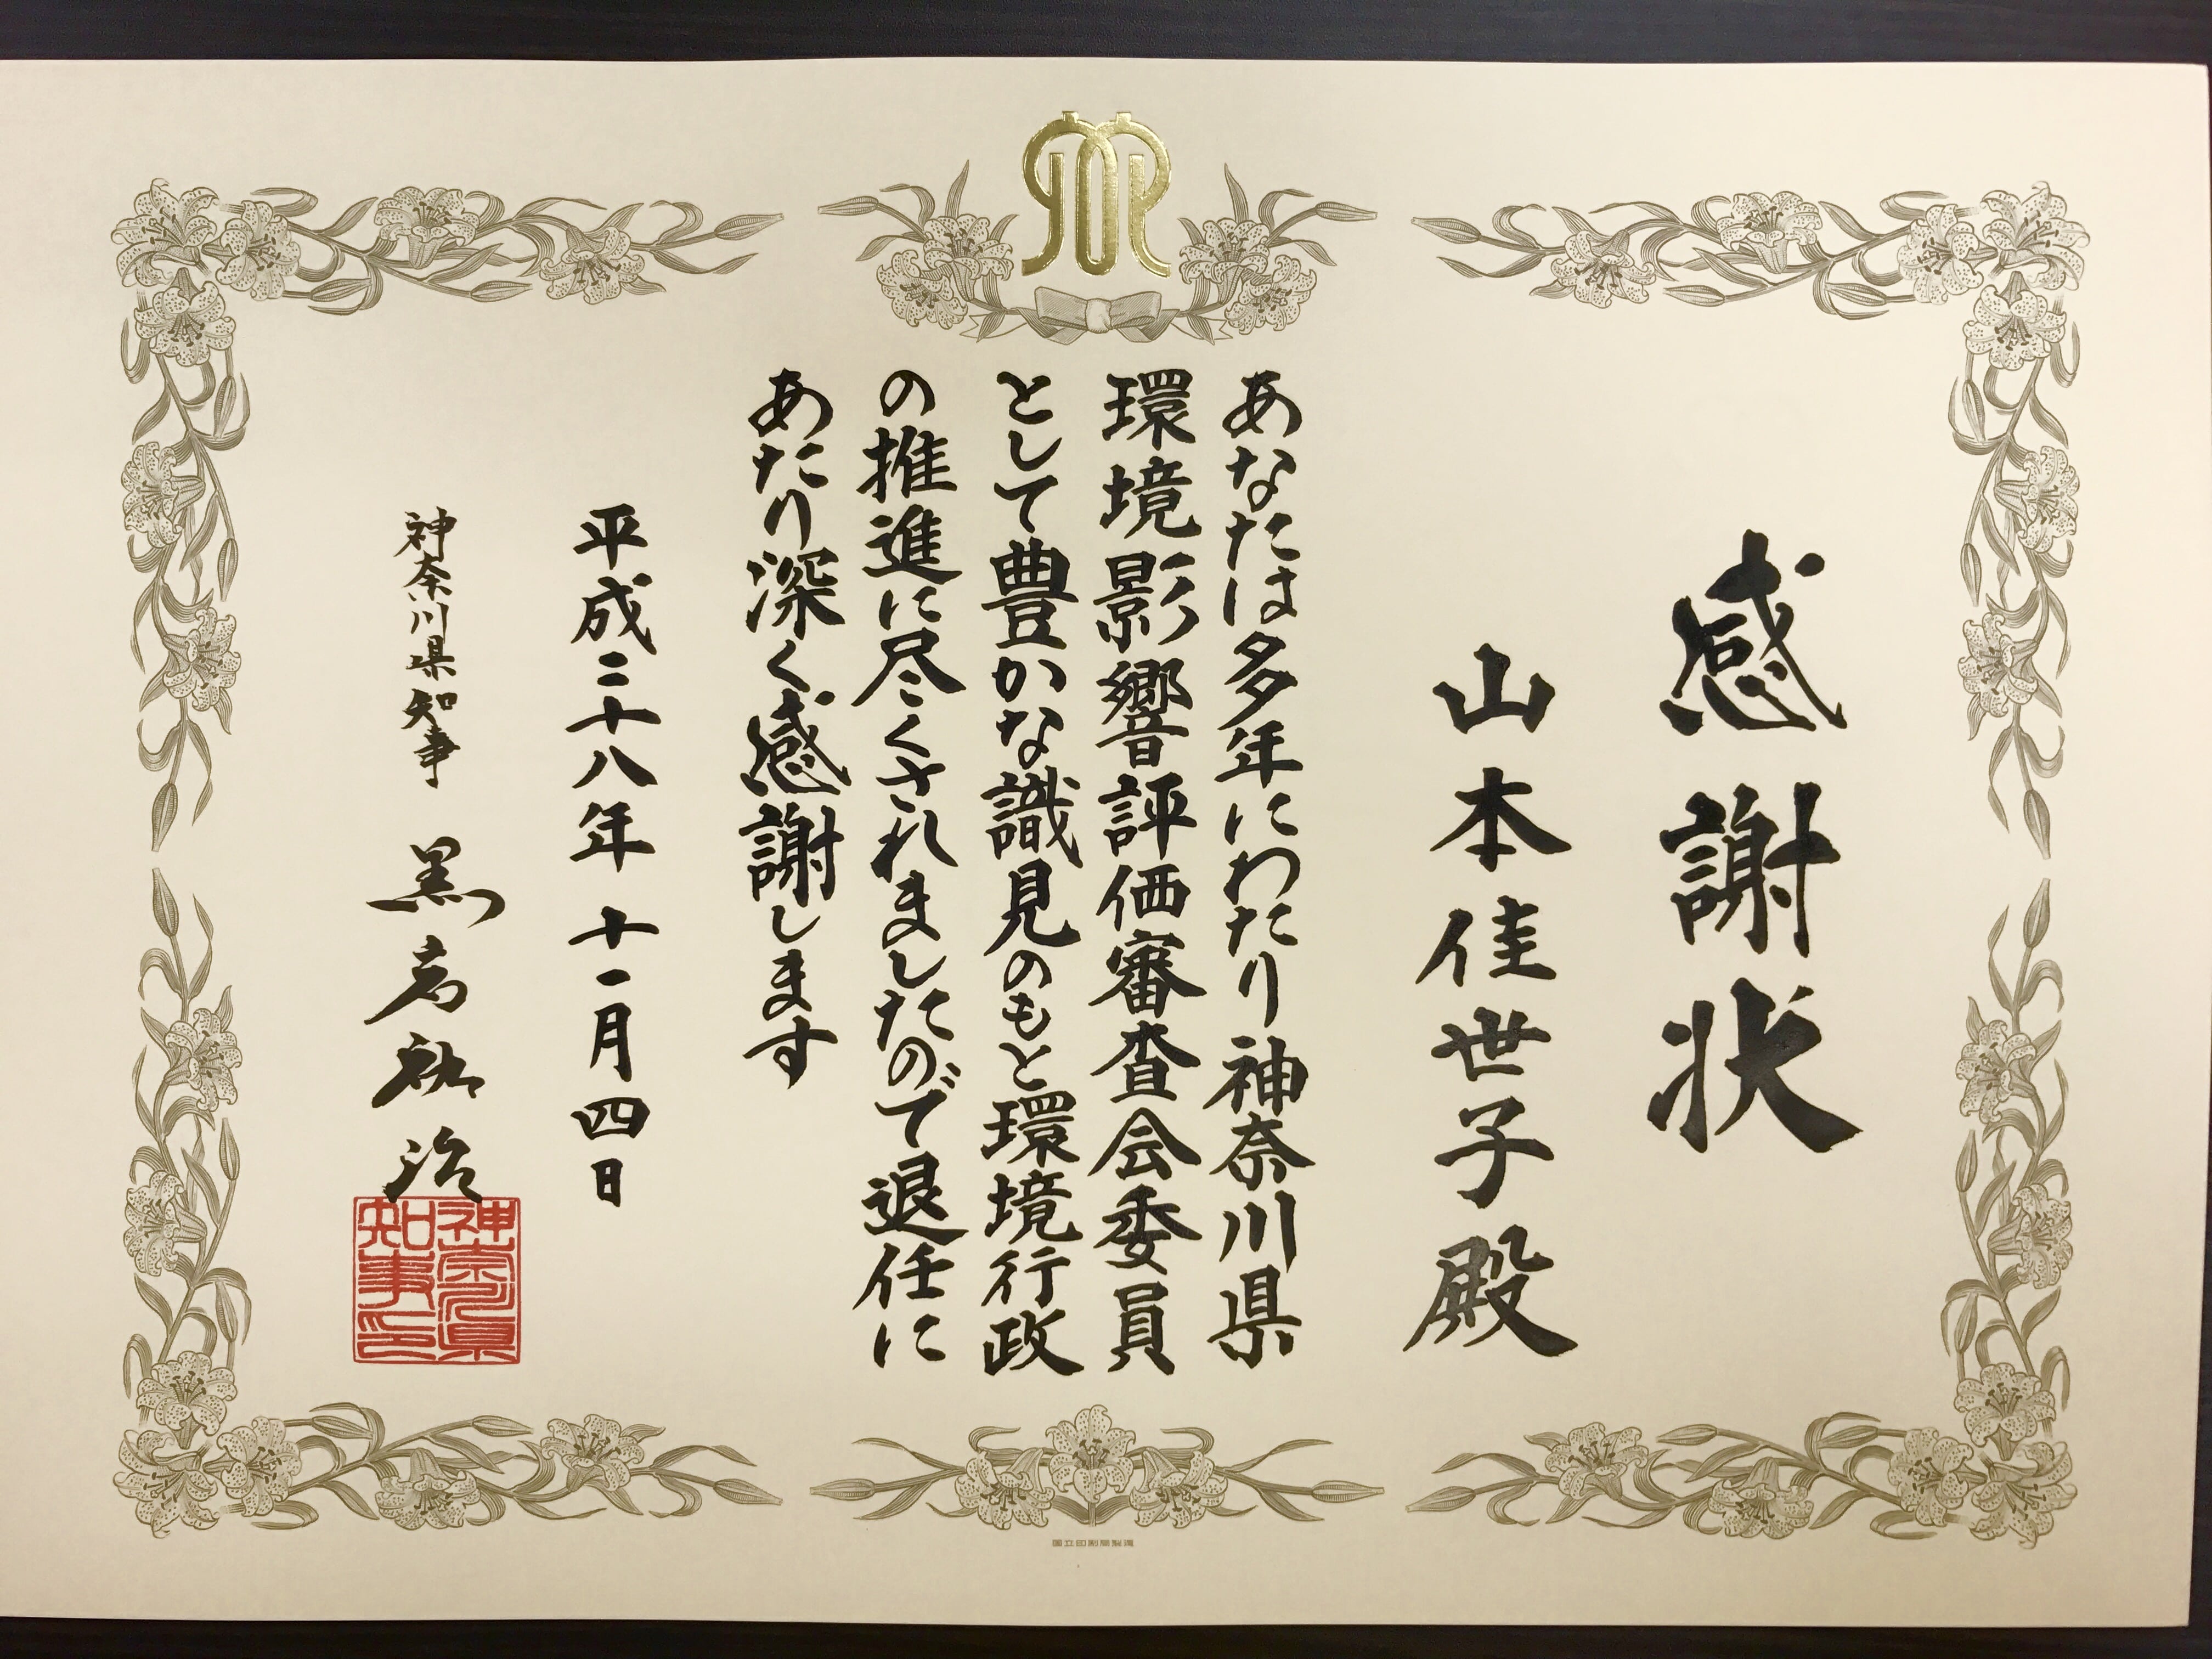 感謝状
山本佳世子殿
あなたは多年にわたり神奈川県
環境影響評価審査会委員
として豊かな識見のもと環境行政
の推進に尽くされましたので退任に
あたり深く感謝します
平成二十八年十一月四日
神奈川県知事 黒岩祐治
神奈川県
知事印